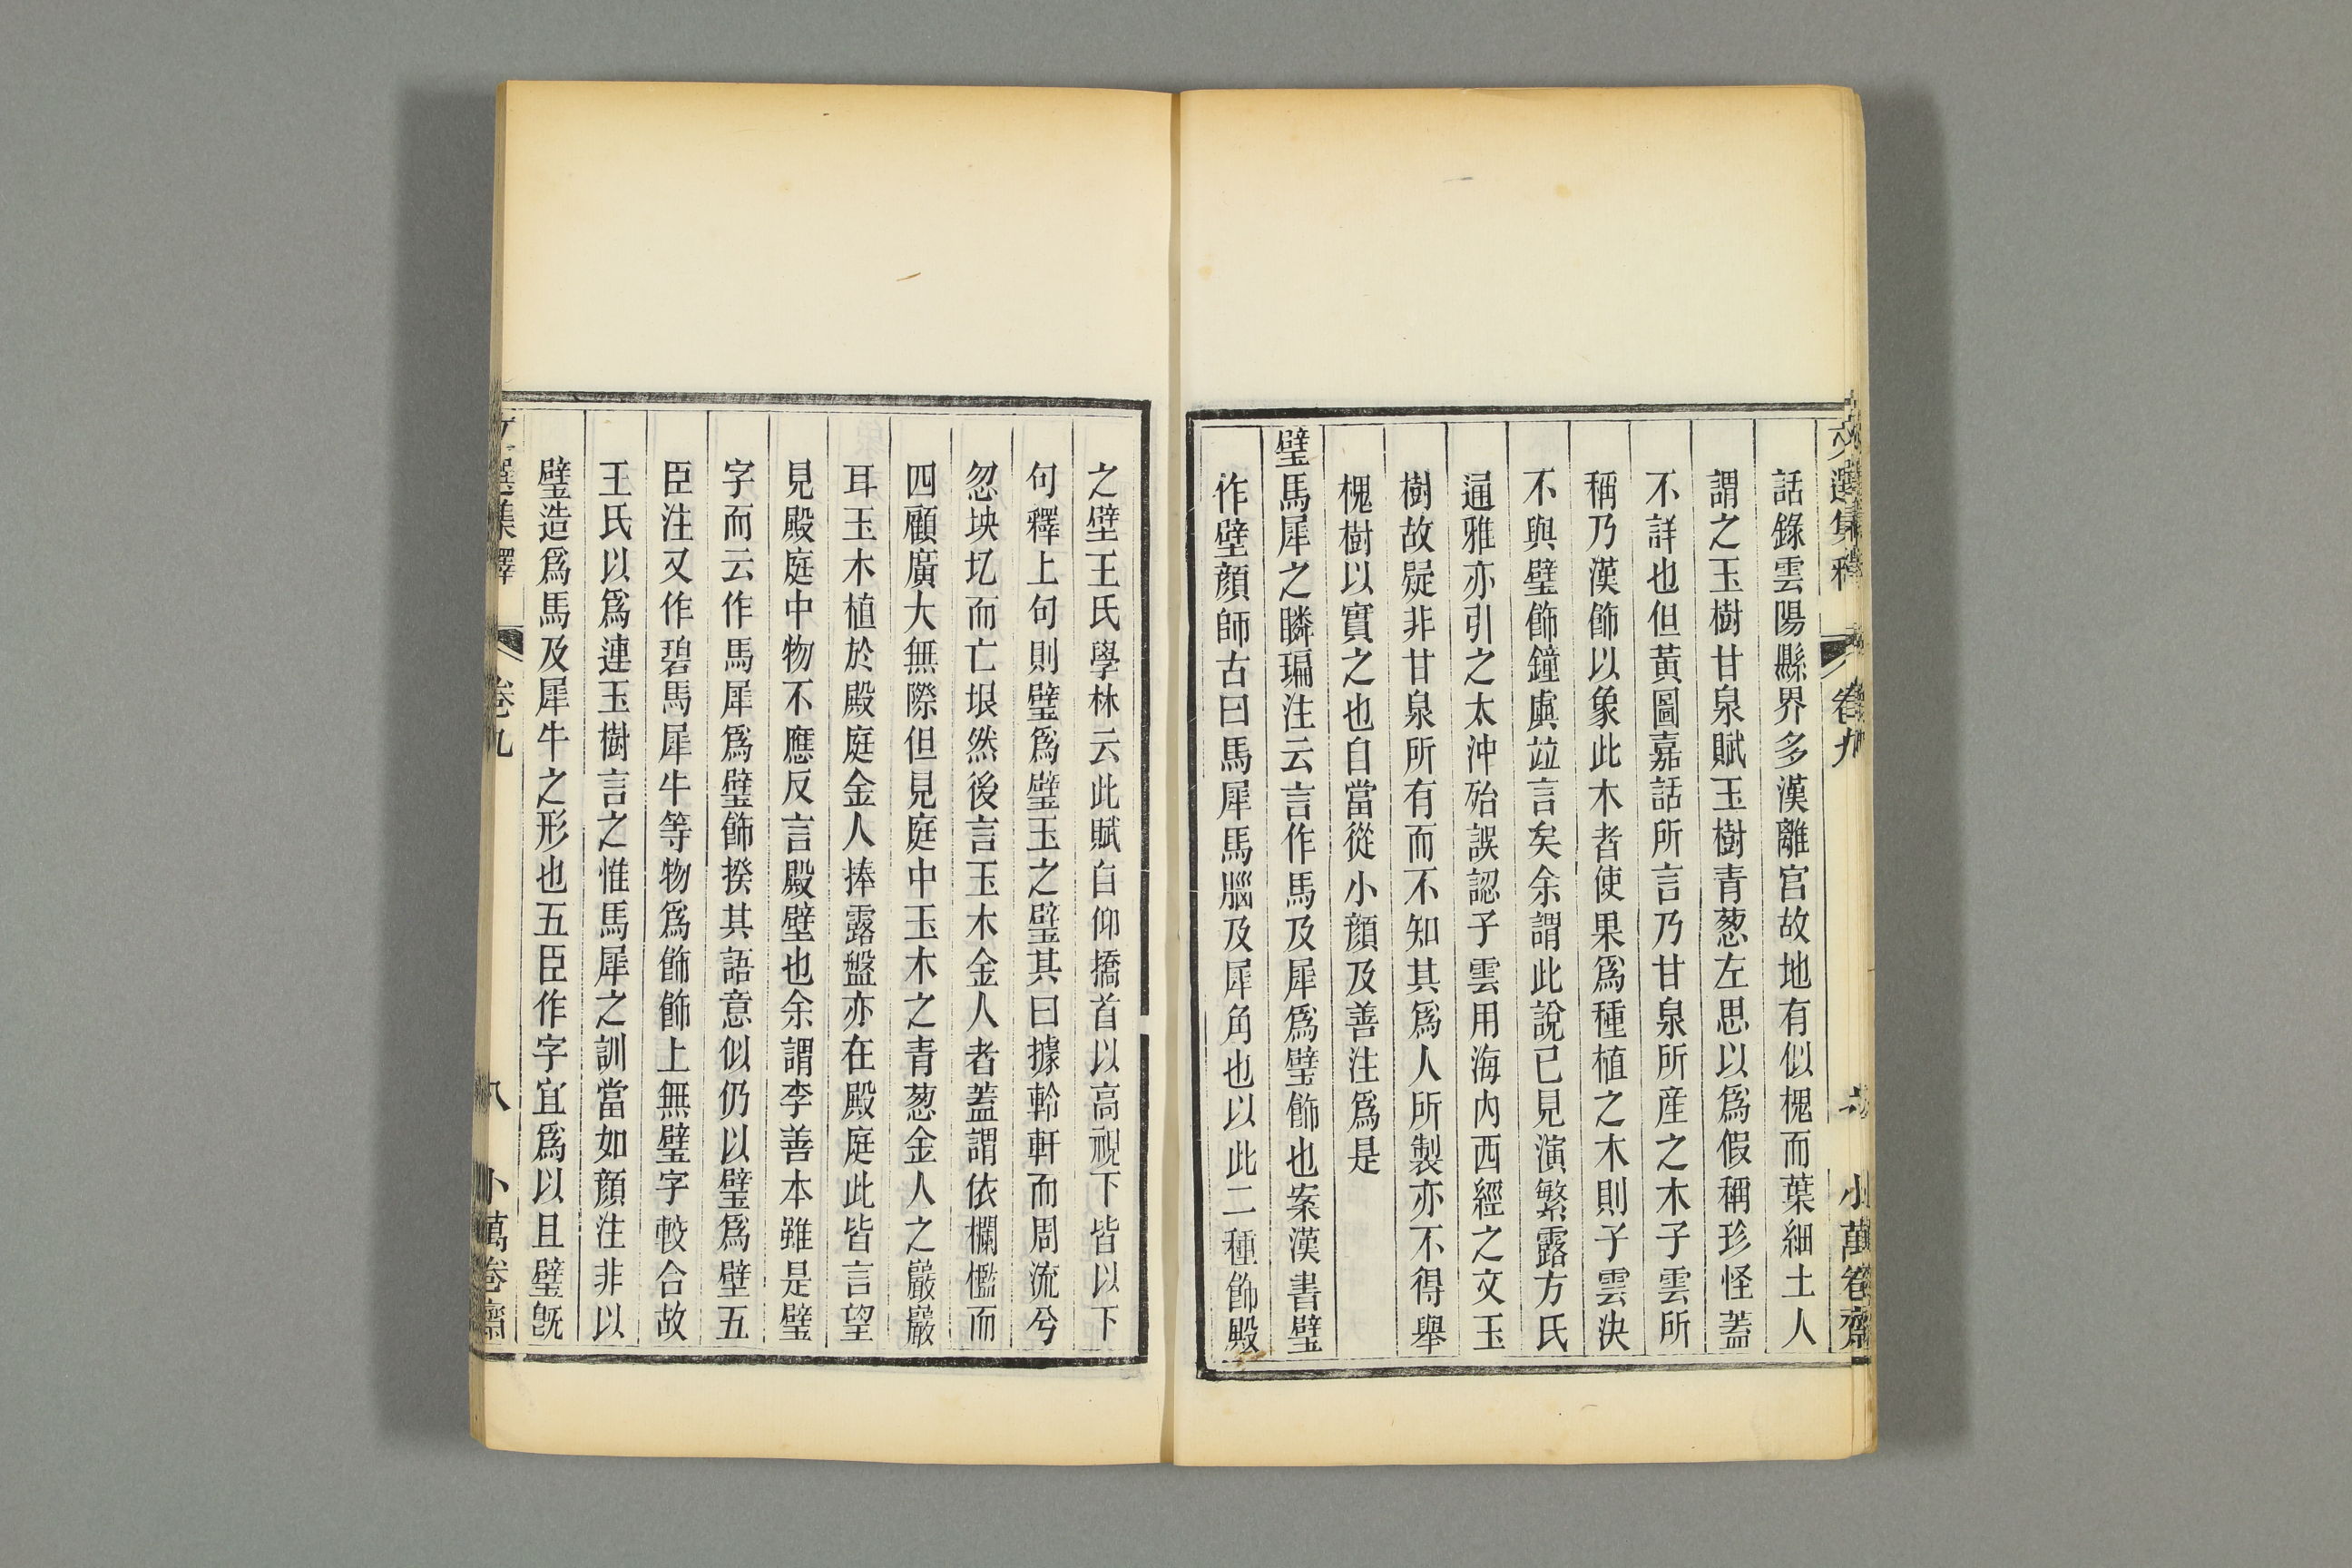 話錄雲陽縣界多漢離宮故地有似槐而葉細土人
謂之玉樹甘泉賦玉樹青葱左思以爲假稱珍怪蓋
不詳也但黃圖嘉話所言乃甘泉所産之木子雲所
稱乃漢飾以象此木者使果爲種植之木則子雲決
不與璧飾鐘虡竝言矣余謂此說已見演繁露方氏
通雅亦引之太沖殆誤認子雲用海內西經之文玉
樹故疑非甘泉所有而不知其爲人所製亦不得舉
槐樹以實之也自當從小顏及善注爲是
璧馬犀之瞵㻞注云言作馬及犀爲璧飾也案漢書璧
作壁顏師古曰馬犀馬腦及犀角也以此二種飾殿
之壁王氏學林云此賦自仰撟首以高視下皆以下
句釋上句則璧爲璧玉之璧其曰據軨軒而周流兮
忽坱圠而亡垠然後言玉木金人者蓋謂依欄檻而
四顧廣大無際但見庭中玉木之青葱金人之巖巖
耳玉木植於殿庭金人捧露盤亦在殿庭此皆言望
見殿庭中物不應反言殿壁也余謂李善本雖是璧
字而云作馬犀爲璧飾揆其語意似仍以璧爲壁五
臣注又作碧馬犀牛等物爲飾飾上無璧字較合故
王氏以爲連玉樹言之惟馬犀之訓當如顏注非以
璧造爲馬及犀牛之形也五臣作字宜爲以且璧旣
選集釋
卷九
八
小萬卷齋